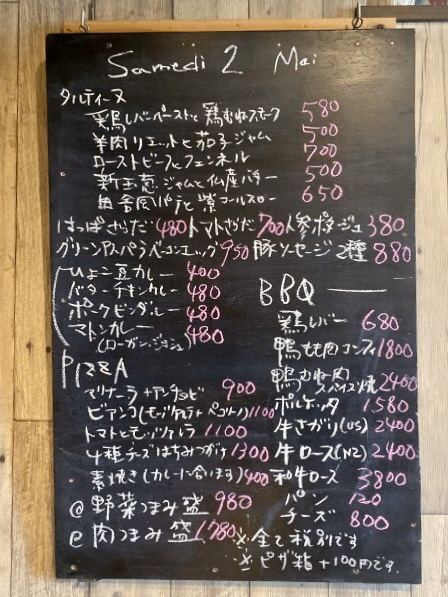 Samedi 2 Mai
タルティーヌ
鶏レバーペーストと鶏むねスモーク 580
羊肉リエットと茄子ジャム 500
ローストビーフとフェンネル 700
新玉葱ジャムと仏産バター 500
パテと紫コールスロー 650
はっぱさらだ 480 トマトさらだ 700 人参ポタージュ 380
グリーンアスパラベーコンエッグ 950 豚ソーセージ2種 880
ひよこ豆カレー 400
バターチキンカレー 480
ポークビンダルー 480
マトンカレー 480
(ローガン・ジョシュ)
PIZZA
マリナーラ+アンチョビ 900
ビアンコ(モッツァレラ+ペコリーノ) 1100
トマトとモッツァレラ 1100
4種チーズはちみつがけ 1300
素焼き(カレーに合います) 400
@野菜つまみ盛 980
@肉つまみ盛 1780
BBQ
鶏レバー 680
鴨もも肉コンフィ 1800
鴨むね肉スパイス焼 2400
ポルケッタ 1580
牛さがり(US) 2400
牛ロース(NZ) 2400
和牛ロース 3800
パン 120
チーズ 800
※全て税別です
※ピザ箱+100円です。